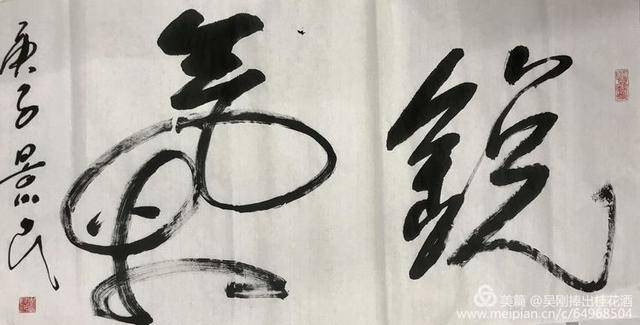 銳氣
庚子景民
美篇 @吴刚捧出桂花酒
www.meipian.cn/c/64968504